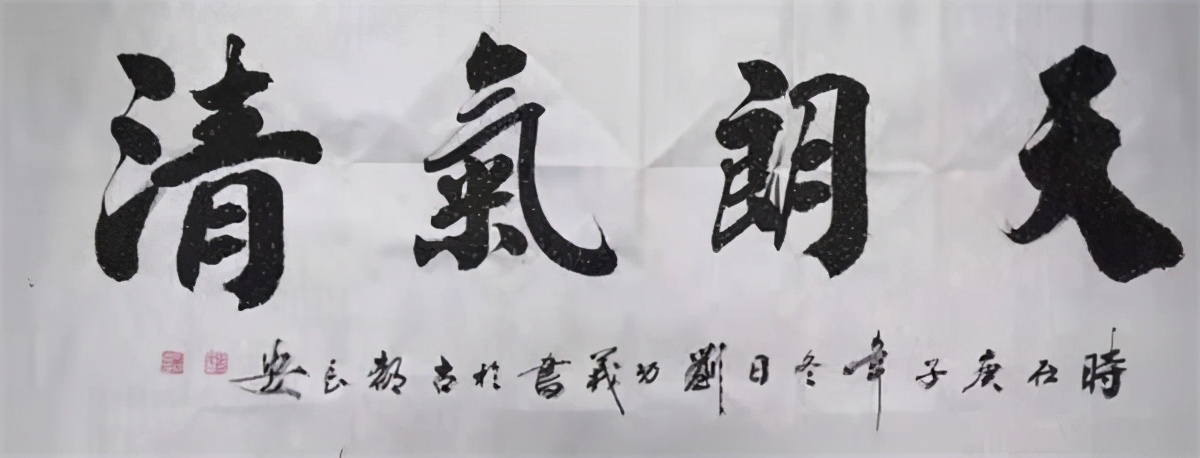 天朗氣清
時在庚子年冬日劉功義書於古都長安